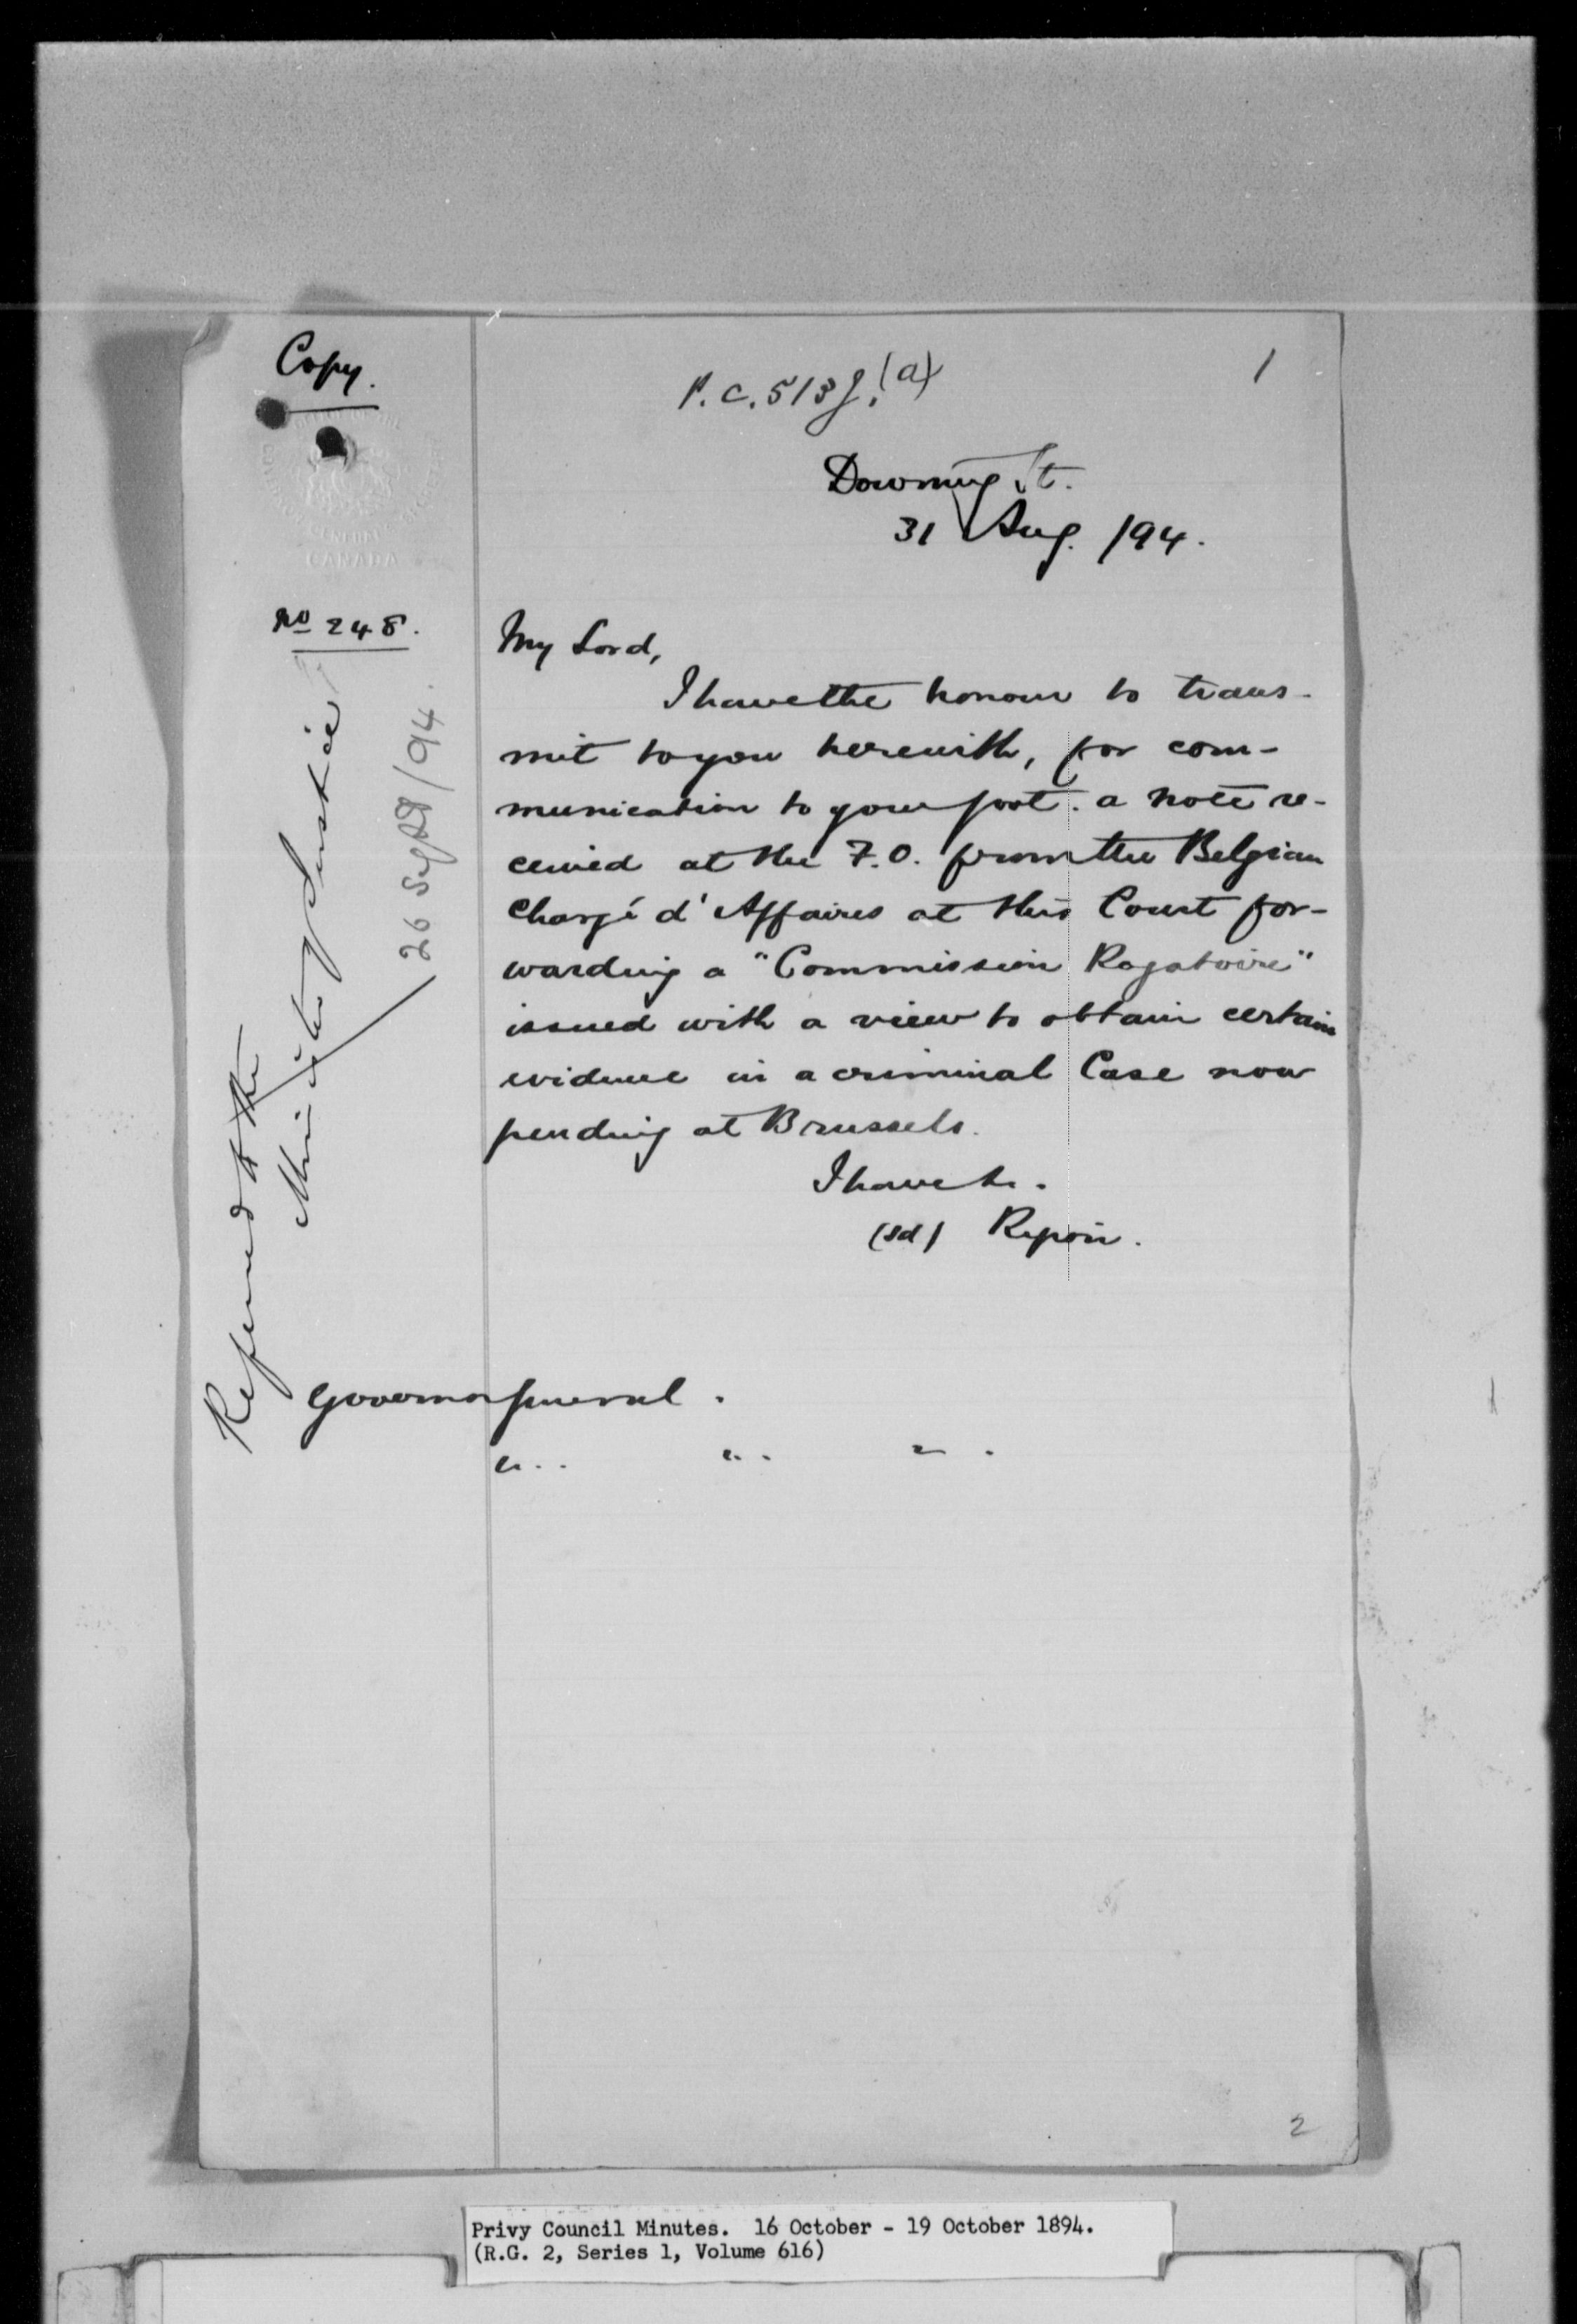 Copy.
P.C. 513 J. (a)
1
Downing St.
31 Aug. /94.
No 248.
My Lord,
I have the honour to trans-
mit to you herewith, for com-
munication to your govt. a note re-
ceived at the F.O. from the Belgian
Chargé d'Affaires at this Court for-
warding a "Commission Rogatoire"
issued with a view to obtain certain
evidence in a criminal Case now
pending at Brussels.
I have &c.
(sd) Ripon.
Referred to the
Minister of Justice
26 Sept /94.
Governor General.
&c.. &c. &c.
CANADA
2
Privy Council Minutes. 16 October - 19 October 1894.
(R.G. 2, Series 1, Volume 616)